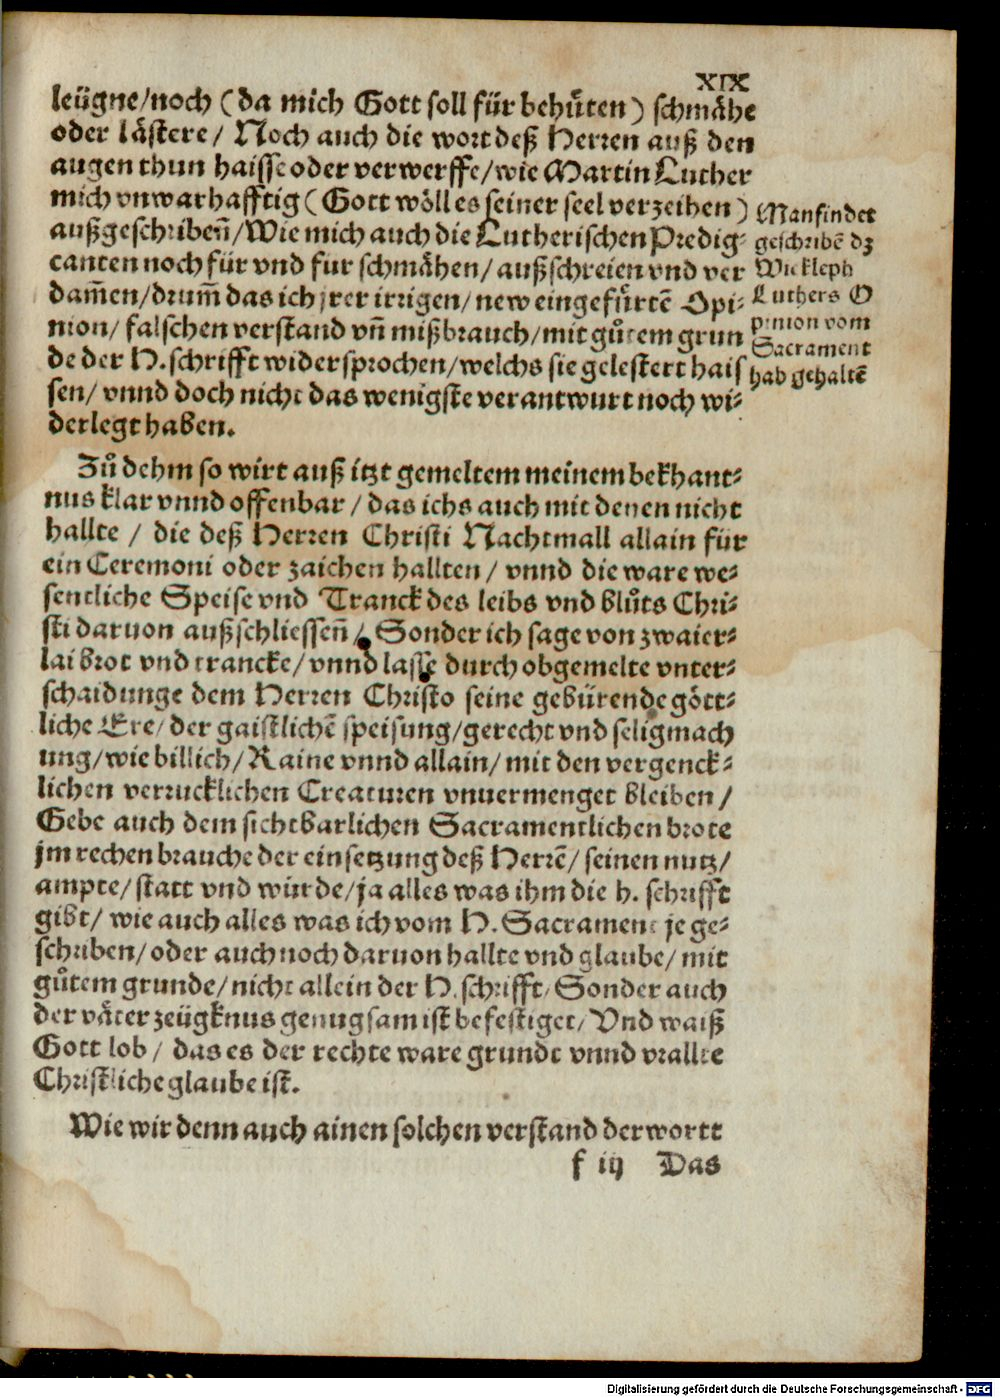 XIX
leügne/noch (da mich Gott soll für behüten) schmähe
oder lästere/ Noch auch die wort deß Herren auß den
augen thun haisse oder verwerffe/wie Martin Luther
mich vnwarhafftig (Gott wöll es seiner seel verzeihen)
außgeschribeñ/Wie mich auch die Lutherischen Predig⸗
canten noch für vnd für schmähen/außschreien vnd ver
dam̃en/drum̃ das ich jrer irrigen/new eingefürtē Opi⸗
nion/falschen verstand vñ mißbrauch/mit gůtem grun
de der H.schrifft widersprochen/welchs sie gelestert hais
sen/vnnd doch nicht das wenigste verantwurt noch wi⸗
derlegt haben.
Man findet
geschribē dz
Wickleph
Luthers O
pinion vom
Sacrament
hab gehaltē
Zů dehm so wirt auß itzt gemeltem meinem bekhant⸗
nus klar vnnd offenbar/das ichs auch mit denen nicht
hallte/ die deß Herren Christi Nachtmall allain für
ein Ceremoni oder zaichen hallten/vnnd die ware we⸗
sentliche Speise vnd Tranck des leibs vnd blůts Chri⸗
sti daruon außschliesseñ/ Sonder ich sage von zwaier⸗
lai brot vnd trancke/vnnd lasse durch obgemelte vnter⸗
schaidunge dem Herren Christo seine gebürende gött⸗
liche Ere/der gaistlichē speisung/gerecht vnd seligmach
ung/wie billich/Raine vnnd allain/mit den vergenck⸗
lichen verrucklichen Creaturen vnuermenget bleiben/
Gebe auch dem sichtbarlichen Sacramentlichen brote
jm rechen brauche der einsetzung deß Herrē/seinen nutz/
ampte/statt vnd würde/ja alles was ihm die h. schrifft
gibt/ wie auch alles was ich vom H. Sacrament je ge⸗
schriben/oder auch noch daruon hallte vnd glaube/mit
gůtem grunde/nicht allein der H.schrifft/Sonder auch
der väter zeügknus genugsam ist befestiget/Vnd waiß
Gott lob/ das es der rechte ware grundt vnnd vrallte
Christliche glaube ist.
Wie wir denn auch ainen solchen verstand der wortt
f iij Das
Digitalisierung gefördert durch die Deutsche Forschungsgemeinschaft - DFG